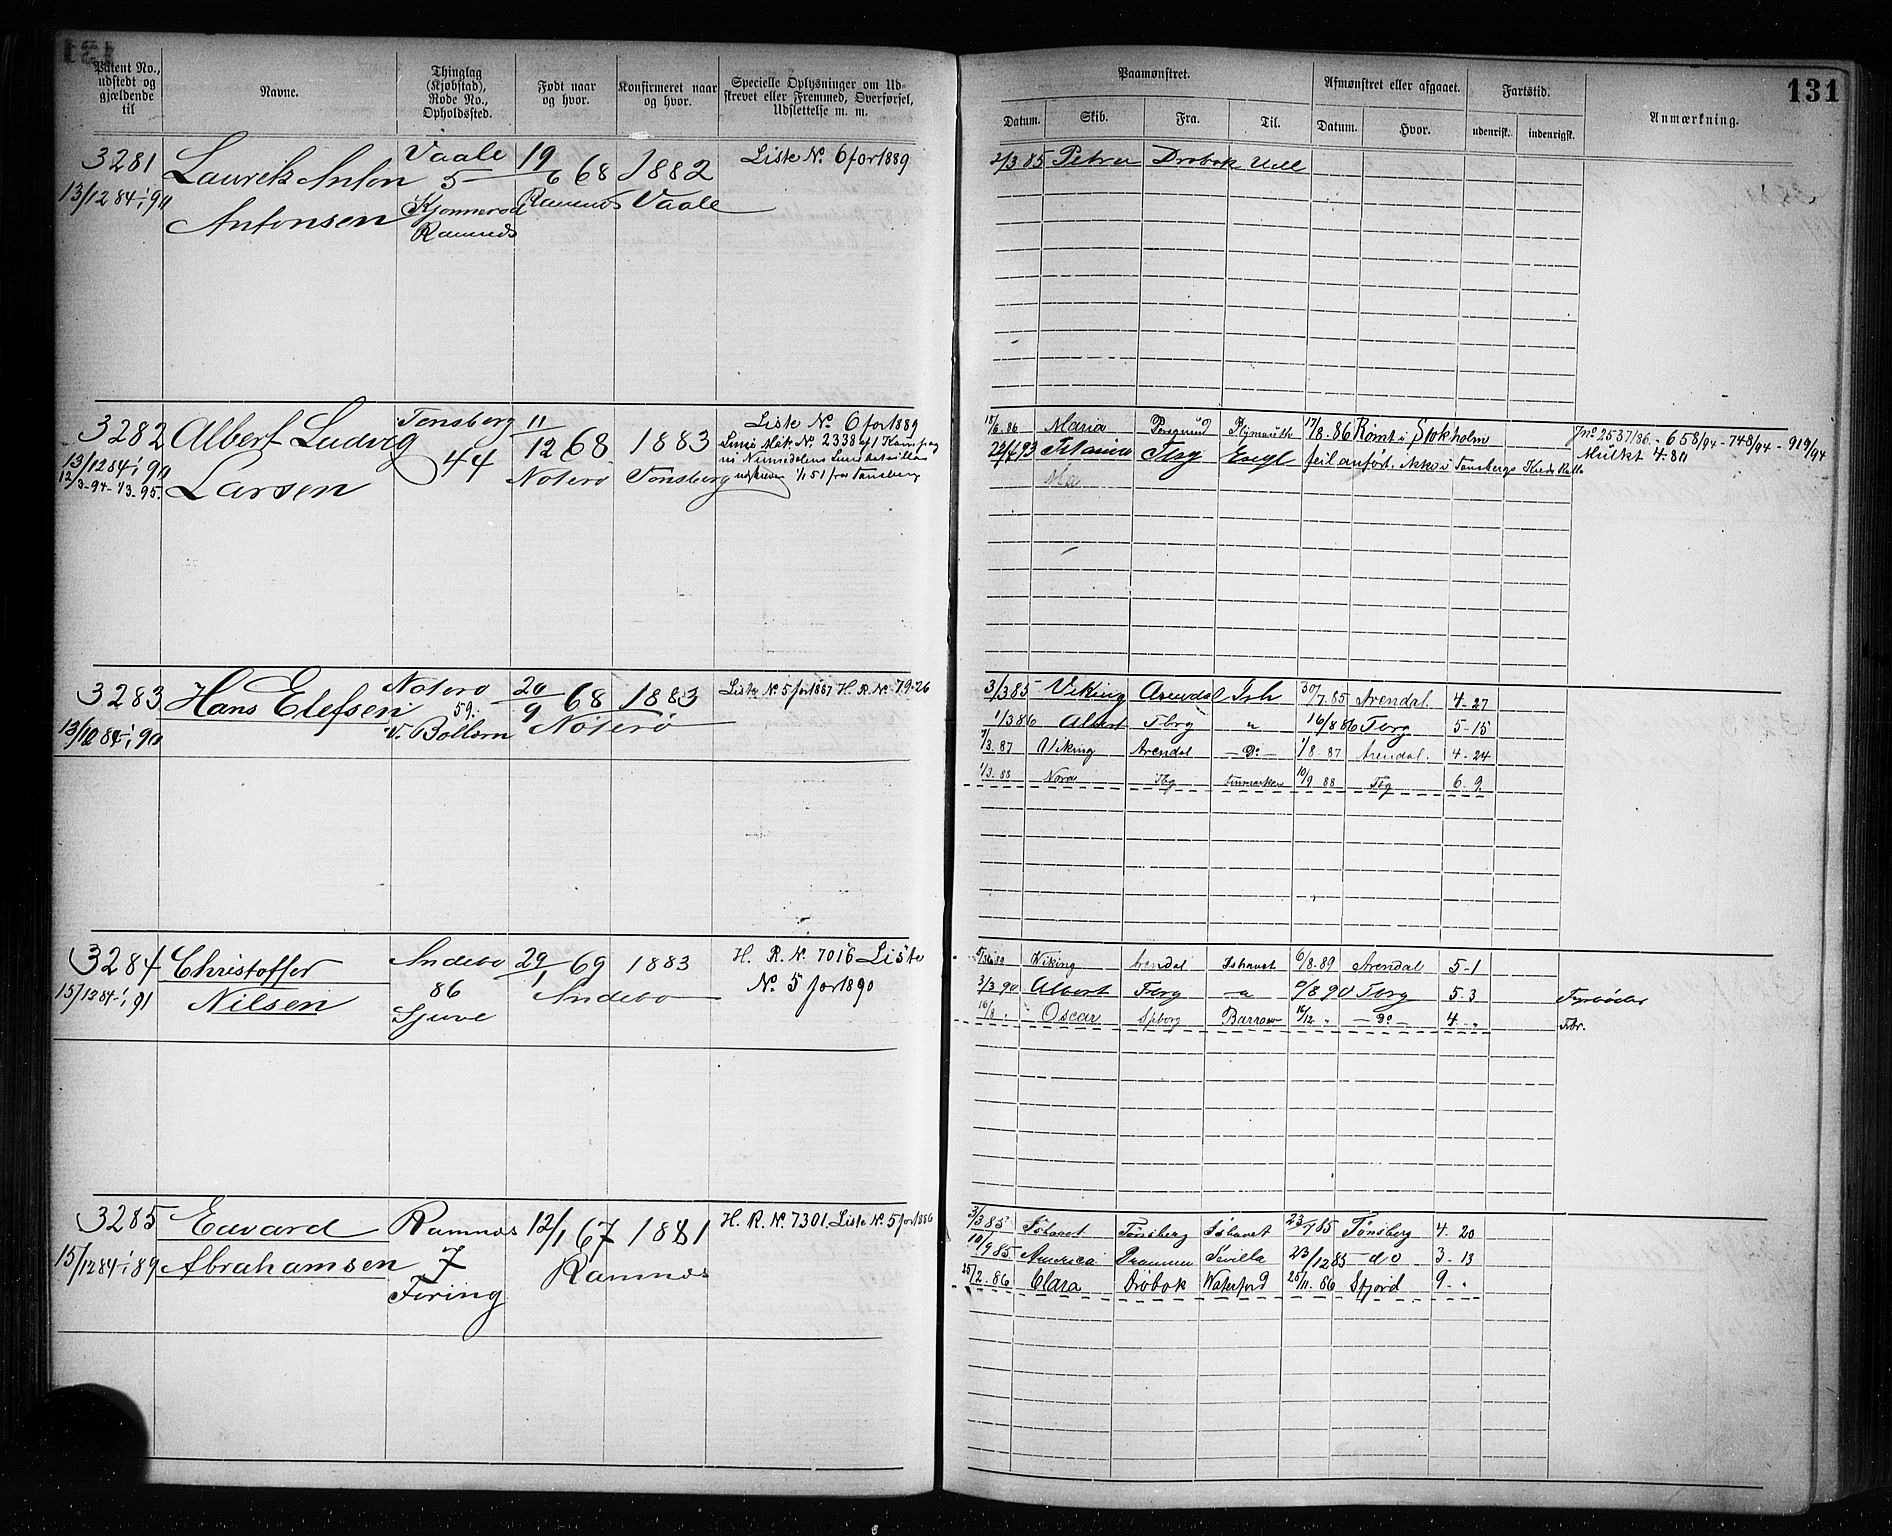 131
Patent No., udstedt og gjældende til
Navne.
Thinglag (Kjøbstad), Rode No., Opholdssted.
Født naar og hvor.
Konfirmeret naar og hvor.
Specielle Oplysninger om Udskrevet eller Fremmed, Overførsel, Udslettelse m. m.
Paamønstret.
Afmønstret eller afgaaet.
Fartstid.
Anmærkning.
Datum.
Skib.
Fra.
Til.
Datum.
Hvor.
udenrigsk.
indenrigsk.
3281 Laurits Anton Vaale 19/6 68 1882 Liste No. 6 for 1889
13/12 84 - 1/1 90 Antonsen 5 Ramnes Vaale
Ramnes
2/3 85 Petra Drøbak
3282 Albert Ludvig Tønsberg 11/12 68 1883 Liste No 6 for 1889
13/12 84 - 1/1 90 Larsen 44 Nøterø Tønsberg
12/3-94 - 1/3. 95.
18/6. 86 Maria Porsgrund Plymouth 17/8. 86 Rømt i Stokholm Jno 2537/86. - 658/94 - 748/94 - 919/94
Tbrg Engl feil anført, ikke i Tønsbergs Mulkt 4-80
3283 Hans Elefsen Nøterø 20/9 68 1883 Liste No 5 for 1887 H. R. No. 79.26
13/12 84 - 1/1 90 59. V. Bollærn Nøterø
3/3 85 Viking Arendal Ish 30/7. 85 Arendal. 4-27
1/3 86 Albert Tbrg " 16/8 86 Tbrg 5-15
2/3. 87 Viking Arendal - Do - 1/8-87 Arendal. 4-24
1/3. 88 Nora Tbg Finmarken 10/9 88 Tbg 6-9
3284 Christoffer Andebo 29/1 69 1883 H. R. N. 7016 Liste
15/12 84 - 1/1 91 Nilsen 86 Andebo No. 5 for 1890
Sjuve
Viking Arendal Ishavet 6/8-89 Arendal 5-1
3/3 90 Albert Tbrg 90 Tbrg 5-3 Fyrbøder
16/8 " Oscar Spborg Barrow - Do - 4-" Fbr.
3285 Edvard Ramnes 12/1 67 1881 H. R. No. 7301. Liste No. 5 for 1886
15/12 84 - 1/1 89 Abrahamsen 7 Ramnes
Firing
3/3 85 Ishavet Tønsberg Ishavet 23/7 85 Tønsberg 4. 20
10/9 85 America Drammen Sevilla 23/12 85 - do 3. 13
25/2. 86 Clara Drøbak Waterford 25/11. 86 Sfjord 9-"